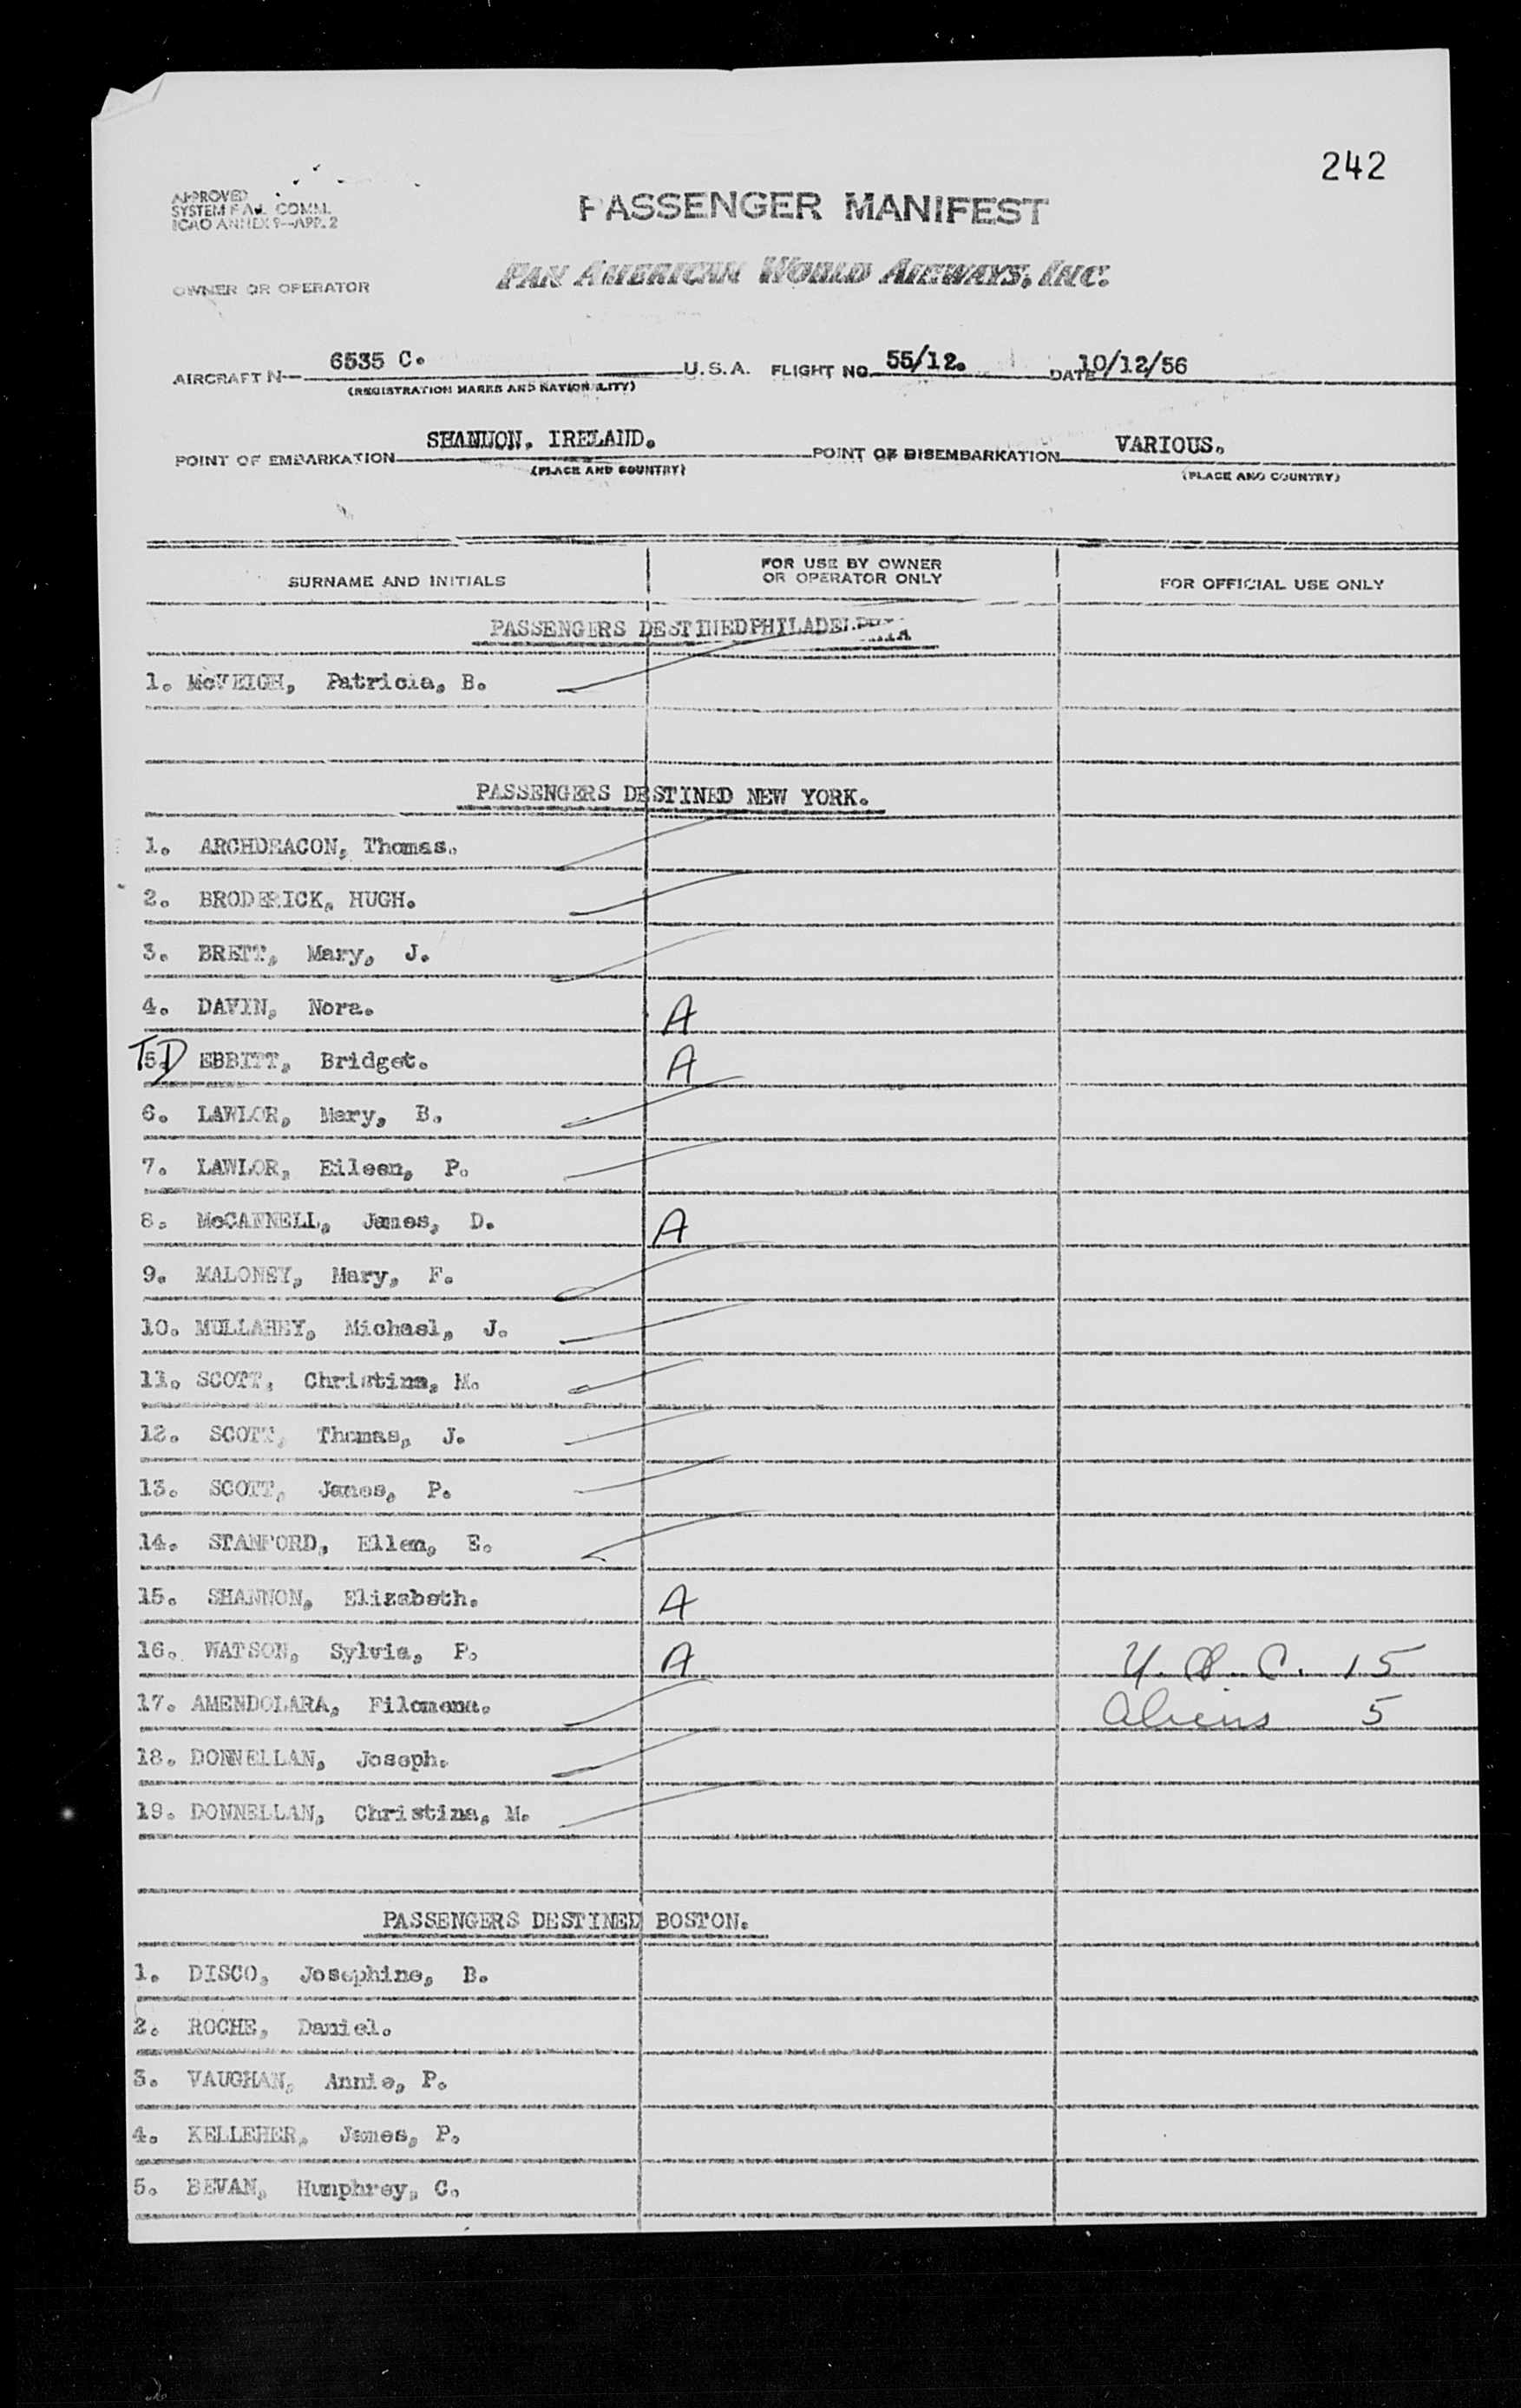 242
APPROVED
SYSTEM FAL COMM.
ICAO ANNEX 9—APP. 2
PASSENGER MANIFEST
OWNER OR OPERATOR PAN AMERICAN WORLD AIRWAYS, INC.
AIRCRAFT N— 6535 C. U.S.A. FLIGHT NO 55/12. DATE 10/12/56
(REGISTRATION MARKS AND NATIONALITY)
POINT OF EMBARKATION SHANNON. IRELAND. POINT OF DISEMBARKATION VARIOUS.
(PLACE AND COUNTRY) (PLACE AND COUNTRY)
SURNAME AND INITIALS
FOR USE BY OWNER
OR OPERATOR ONLY
FOR OFFICIAL USE ONLY
PASSENGERS DESTINEDPHILADELPHIA
1. McVEIGH, Patricia, B.
PASSENGERS DESTINED NEW YORK.
1. ARCHDEACON, Thomas.
2. BRODERICK, HUGH.
3. BRETT, Mary, J.
4. DAVIN, Nora. A
TD 5. EBBITT, Bridget. A
6. LAWLOR, Mary, B.
7. LAWLOR, Eileen, P.
8. McCANNELL, James, D. A
9. MALONEY, Mary, F.
10. MULLAHEY, Michael, J.
11. SCOTT, Christina, M.
12. SCOTT, Thomas, J.
13. SCOTT, James, P.
14. STANFORD, Ellen, E.
15. SHANNON, Elizabeth. A
16. WATSON, Sylvia, P. A U.S.C. 15
17. AMENDOLARA, Filomena. Aliens 5
18. DONNELLAN, Joseph.
19. DONNELLAN, Christina, M.
PASSENGERS DESTINED BOSTON.
1. DISCO, Josephine, B.
2. ROCHE, Daniel.
3. VAUGHAN, Annie, P.
4. KELLEHER, James, P.
5. BEVAN, Humphrey, C.